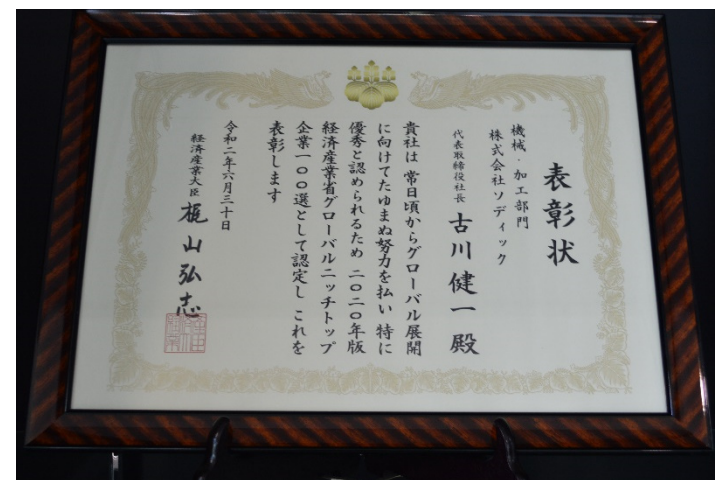 表彰状
機械・加工部門
株式会社ソディック
代表取締役社長 古川健一殿
貴社は 常日頃からグローバル展開
に向けてたゆまぬ努力を払い 特に
優秀と認められるため 二〇二〇年版
経済産業省グローバルニッチトップ
企業一〇〇選として認定し これを
表彰します
令和二年六月三十日
経済産業大臣 梶山弘志